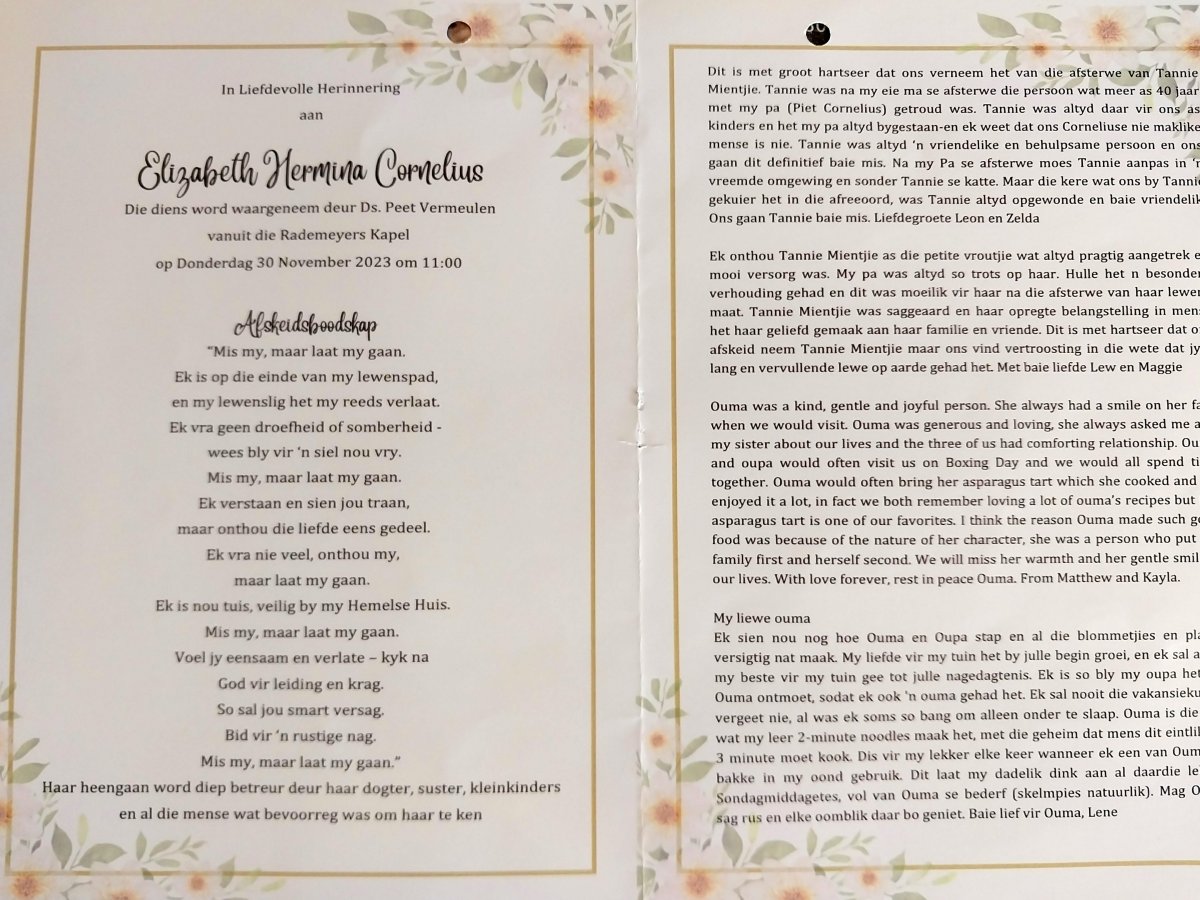 In Liefdevolle Herinnering
aan
Elizabeth Hermina Cornelius
Die diens word waargeneem deur Ds. Peet Vermeulen
vanuit die Rademeyers Kapel
op Donderdag 30 November 2023 om 11:00
Afskeidsboodskap
“Mis my, maar laat my gaan.
Ek is op die einde van my lewenspad,
en my lewenslig het my reeds verlaat.
Ek vra geen droefheid of somberheid -
wees bly vir ‘n siel nou vry.
Mis my, maar laat my gaan.
Ek verstaan en sien jou traan,
maar onthou die liefde eens gedeel.
Ek vra nie veel, onthou my,
maar laat my gaan.
Ek is nou tuis, veilig by my Hemelse Huis.
Mis my, maar laat my gaan.
Voel jy eensaam en verlate – kyk na
God vir leiding en krag.
So sal jou smart versag.
Bid vir ‘n rustige nag.
Mis my, maar laat my gaan.”
Haar heengaan word diep betreur deur haar dogter, suster, kleinkinders
en al die mense wat bevoorreg was om haar te ken
Dit is met groot hartseer dat ons verneem het van die afsterwe van Tannie
Mientjie. Tannie was na my eie ma se afsterwe die persoon wat meer as 40 jaar
met my pa (Piet Cornelius) getroud was. Tannie was altyd daar vir ons as
kinders en het my pa altyd bygestaan-en ek weet dat ons Corneliuse nie maklike
mense is nie. Tannie was altyd ‘n vriendelike en behulpsame persoon en ons
gaan dit definitief baie mis. Na my Pa se afsterwe moes Tannie aanpas in ‘n
vreemde omgewing en sonder Tannie se katte. Maar die kere wat ons by Tannie
gekuier het in die afreeoord, was Tannie altyd opgewonde en baie vriendelik
Ons gaan Tannie baie mis. Liefdegroete Leon en Zelda
Ek onthou Tannie Mientjie as die petite vroutjie wat altyd pragtig aangetrek
mooi versorg was. My pa was altyd so trots op haar. Hulle het n
verhouding gehad en dit was moeilik vir haar na die afsterwe van haar
maat. Tannie Mientjie was saggeaard en haar opregte belangstelling in
het haar geliefd gemaak aan haar familie en vriende. Dit is met hartseer dat
afskeid neem Tannie Mientjie maar ons vind vertroosting in die wete dat
lang en vervullende lewe op aarde gehad het. Met baie liefde Lew en Maggie
Ouma was a kind, gentle and joyful person. She always had a smile on her
when we would visit. Ouma was generous and loving, she always asked me
my sister about our lives and the three of us had comforting relationship.
and oupa would often visit us on Boxing Day and we would all spend
together. Ouma would often bring her asparagus tart which she cooked and
enjoyed it a lot, in fact we both remember loving a lot of ouma’s recipes but
asparagus tart is one of our favorites. I think the reason Ouma made such
food was because of the nature of her character, she was a person who put
family first and herself second. We will miss her warmth and her gentle
our lives. With love forever, rest in peace Ouma. From Matthew and Kayla.
My liewe ouma
Ek sien nou nog hoe Ouma en Oupa stap en al die blommetjies en
versigtig nat maak. My liefde vir my tuin het by julle begin groei, en ek sal
my beste vir my tuin gee tot julle nagedagtenis. Ek is so bly my oupa het
Ouma ontmoet, sodat ek ook 'n ouma gehad het. Ek sal nooit die
vergeet nie, al was ek soms so bang om alleen onder te slaap. Ouma is die
wat my leer 2-minute noodles maak het, met die geheim dat mens dit
3 minute moet kook. Dis vir my lekker elke keer wanneer ek een van
bakke in my oond gebruik. Dit laat my dadelik dink aan al daardie
Sondagmiddagetes, vol van Ouma se bederf (skelmpies natuurlik). Mag
sag rus en elke oomblik daar bo geniet. Baie lief vir Ouma, Lene